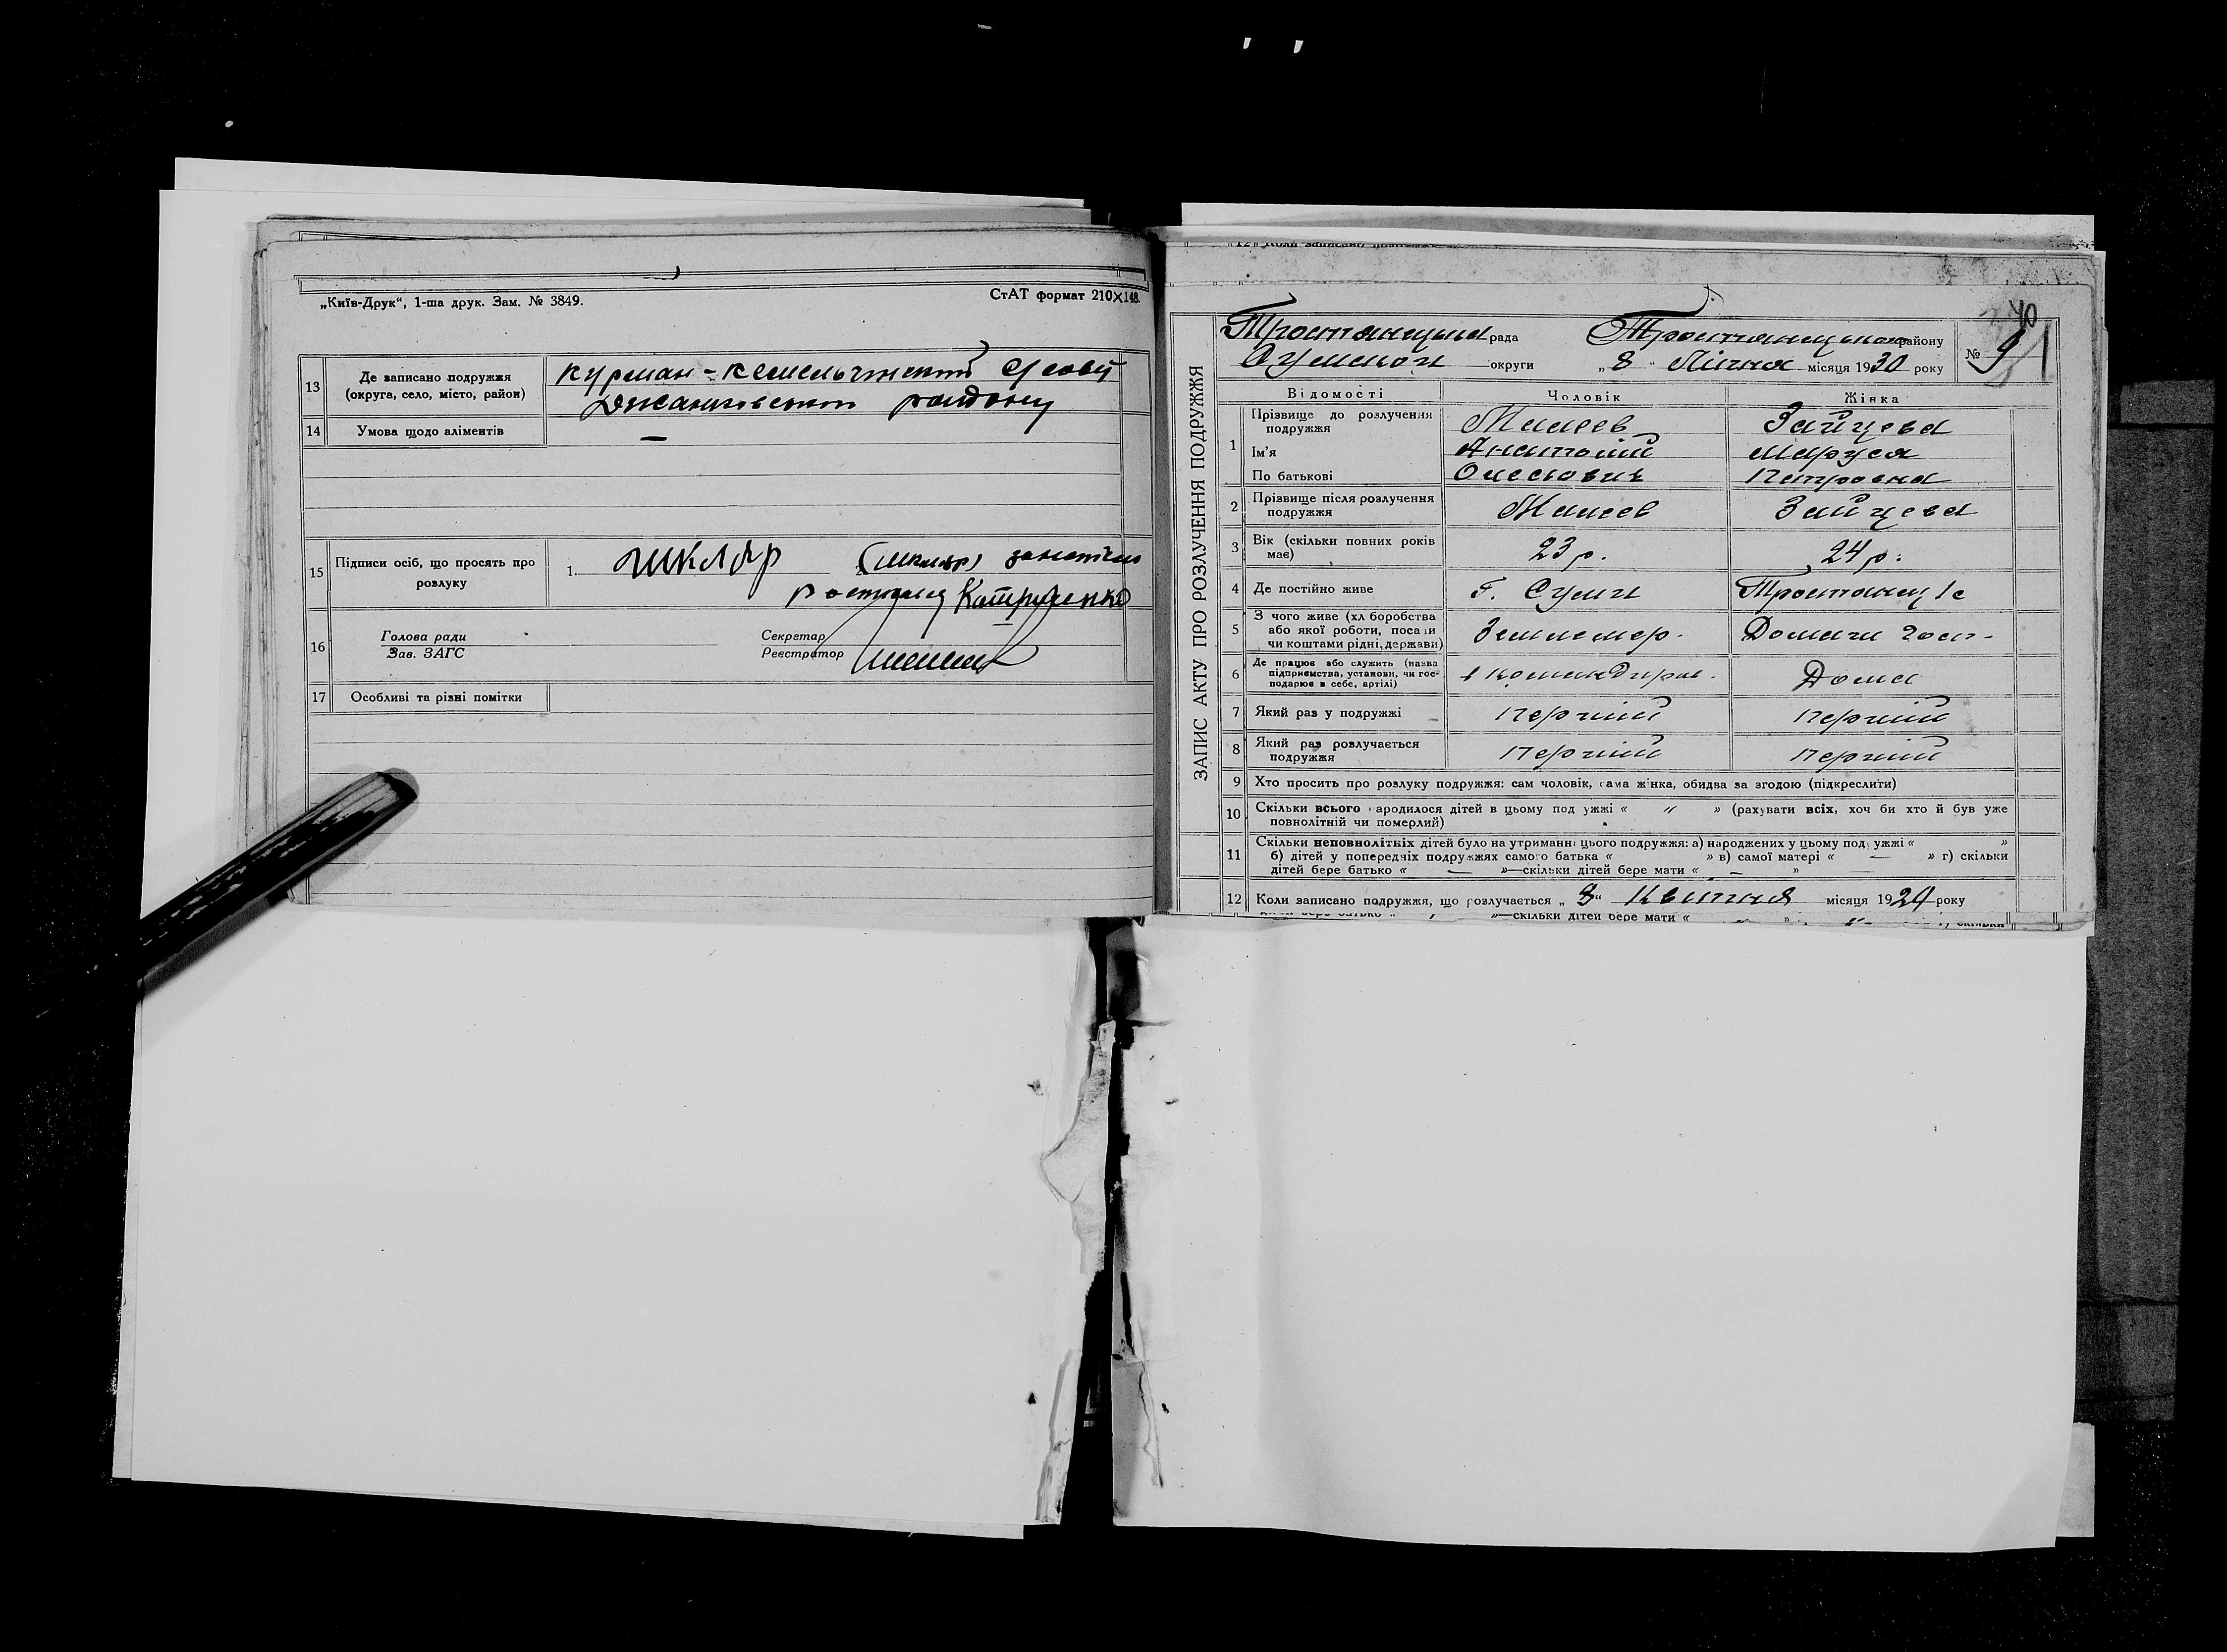 „Київ-Друк“, 1-ша друк. Зам. № 3849.
СтАТ формат 210×148.
13 Де записано подружжя (округа, село, місто, район)
Курман-Кемельчинский
Джанковського району
14 Умова щодо аліментів —
15 Підписи осіб, що просять про розлуку
1. Шкляр (Шкляр)
16 Голова ради
Зав. ЗАГС
Секретар
Реєстратор
17 Особливі та різні помітки
ЗАПИС АКТУ ПРО РОЗЛУЧЕННЯ ПОДРУЖЖЯ
рада
району
Сумской округи
„8“ Січня місяця 1930 року
№ 9
40
Відомості Чоловік Жінка
1 Прізвище до розлучення подружжя Зайцева
Ім'я Анатолій Маруся
По батькові Петровна
2 Прізвище після розлучення подружжя Зайцева
3 Вік (скільки повних років має) 23 р. 24 р.
4 Де постійно живе г. Суми Тростянец
5 З чого живе (хліборобства або якої роботи, посади чи коштами рідні, держави) Землемер. Домашн
6 Де працює або служить (назва підприємства, установи, чи господарює в себе, артілі) Дома
7 Який раз у подружжі Перший Перший
8 Який раз розлучається подружжя Перший Перший
9 Хто просить про розлуку подружжя: сам чоловік, сама жінка, обидва за згодою (підкреслити)
10 Скільки всього народилося дітей в цьому подружжі « » (рахувати всіх, хоч би хто й був уже
повнолітній чи померлий)
11 Скільки неповнолітніх дітей було на утриманні цього подружжя: а) народжених у цьому подружжі « »
б) дітей у попередніх подружжях самого батька « » в) самої матері « — » г) скільки
дітей бере батько « — »—скільки дітей бере мати « — »
12 Коли записано подружжя, що розлучається „8“ Квітня місяця 1929 року